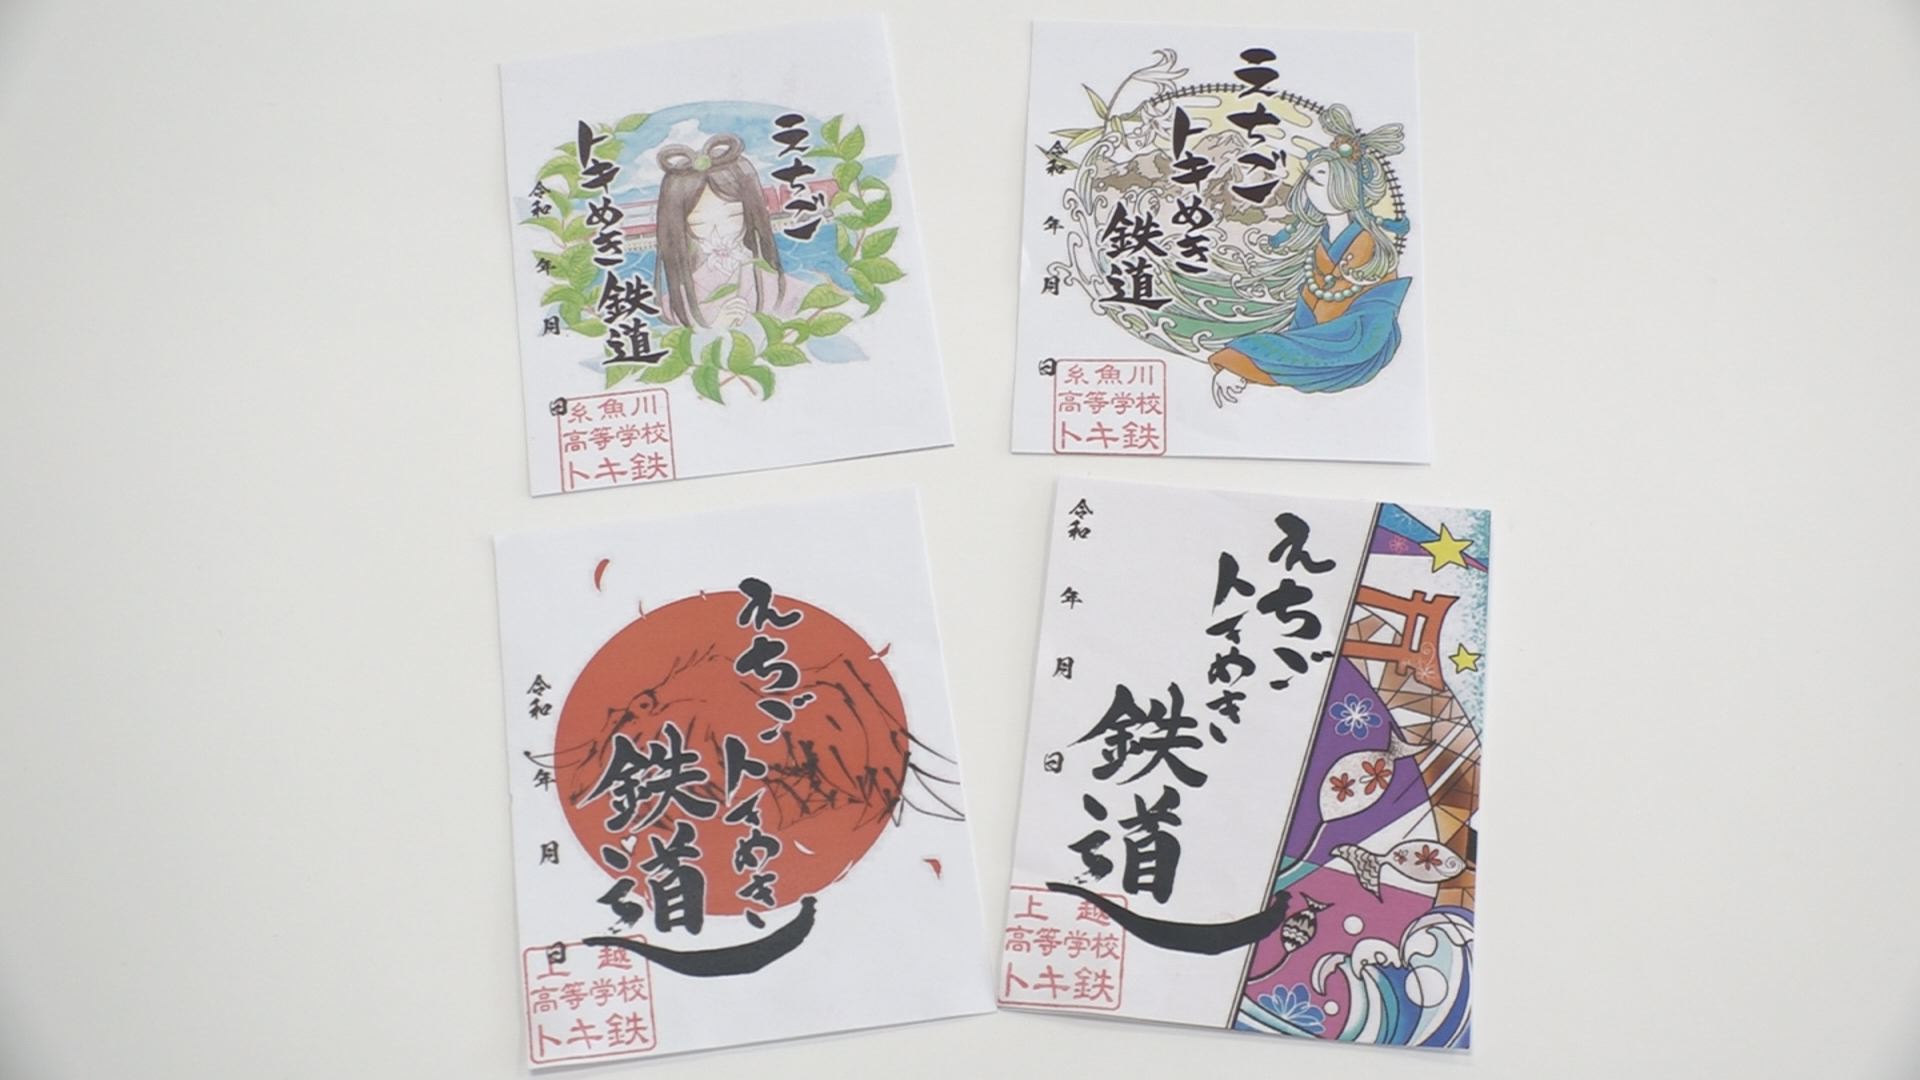 えちご
トキめき
鉄道
令和 年 月 日
糸魚川
高等学校
トキ鉄
えちご
トキめき
鉄道
令和 年 月 日
糸魚川
高等学校
トキ鉄
えちご
トキめき
鉄道
令和 年 月 日
上越
高等学校
トキ鉄
えちご
トキめき
鉄道
令和 年 月 日
上越
高等学校
トキ鉄